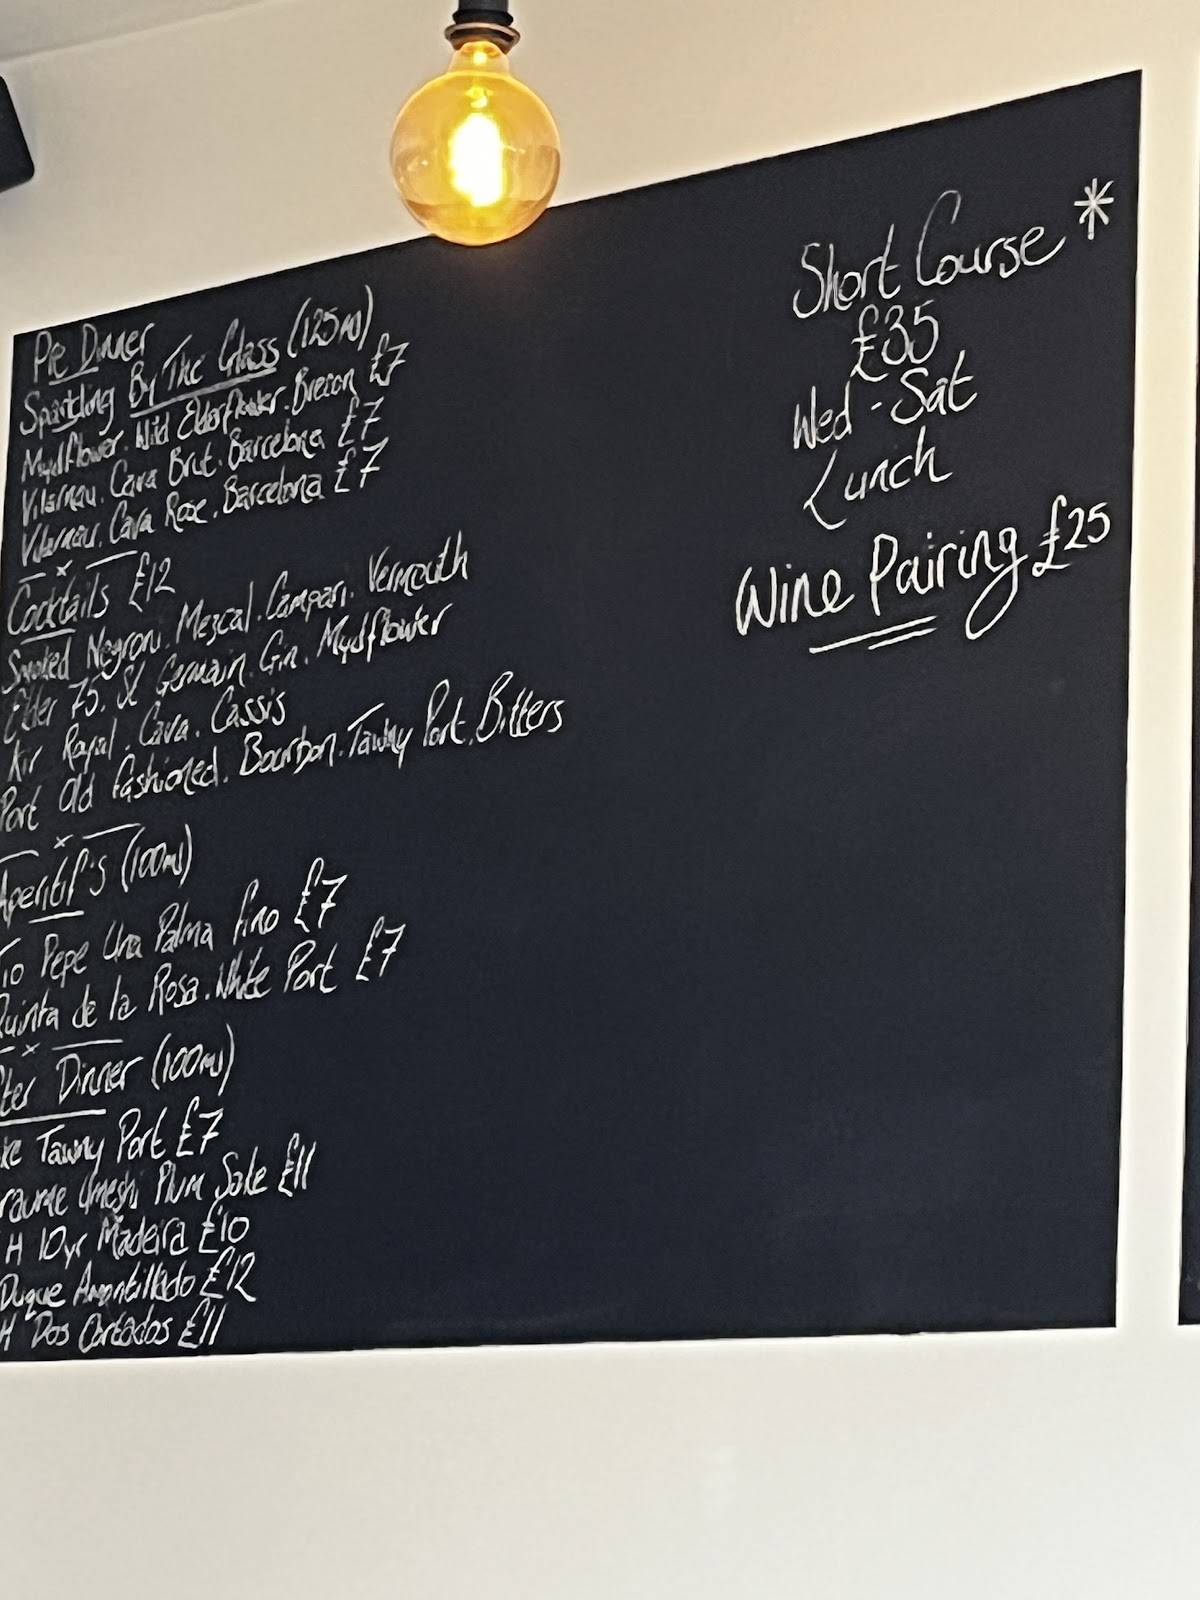 Pre Dinner
Sparkling By The Glass (125ml)
Mydflower. Wild Elderflower. Brecon £7
Vilarnau. Cava Brut. Barcelona £7
Vilarnau. Cava Rose. Barcelona £7
Cocktails £12
Smoked Negroni. Mezcal. Campari. Vermouth
Elder 75. St Germain. Gin. Mydflower
Kir Royal. Cava. Cassis
Port Old Fashioned. Bourbon. Tawny Port. Bitters
Aperitif's (100ml)
Tio Pepe Una Palma Fino £7
Quinta de la Rosa. White Port £7
Dinner (100ml)
Tawny Port £7
Umeshi Plum Sake £11
H 10yr Madeira £10
Duque Amontillado £12
H Dos Cortados £11
Short Course *
£35
Wed - Sat
Lunch
Wine Pairing £25